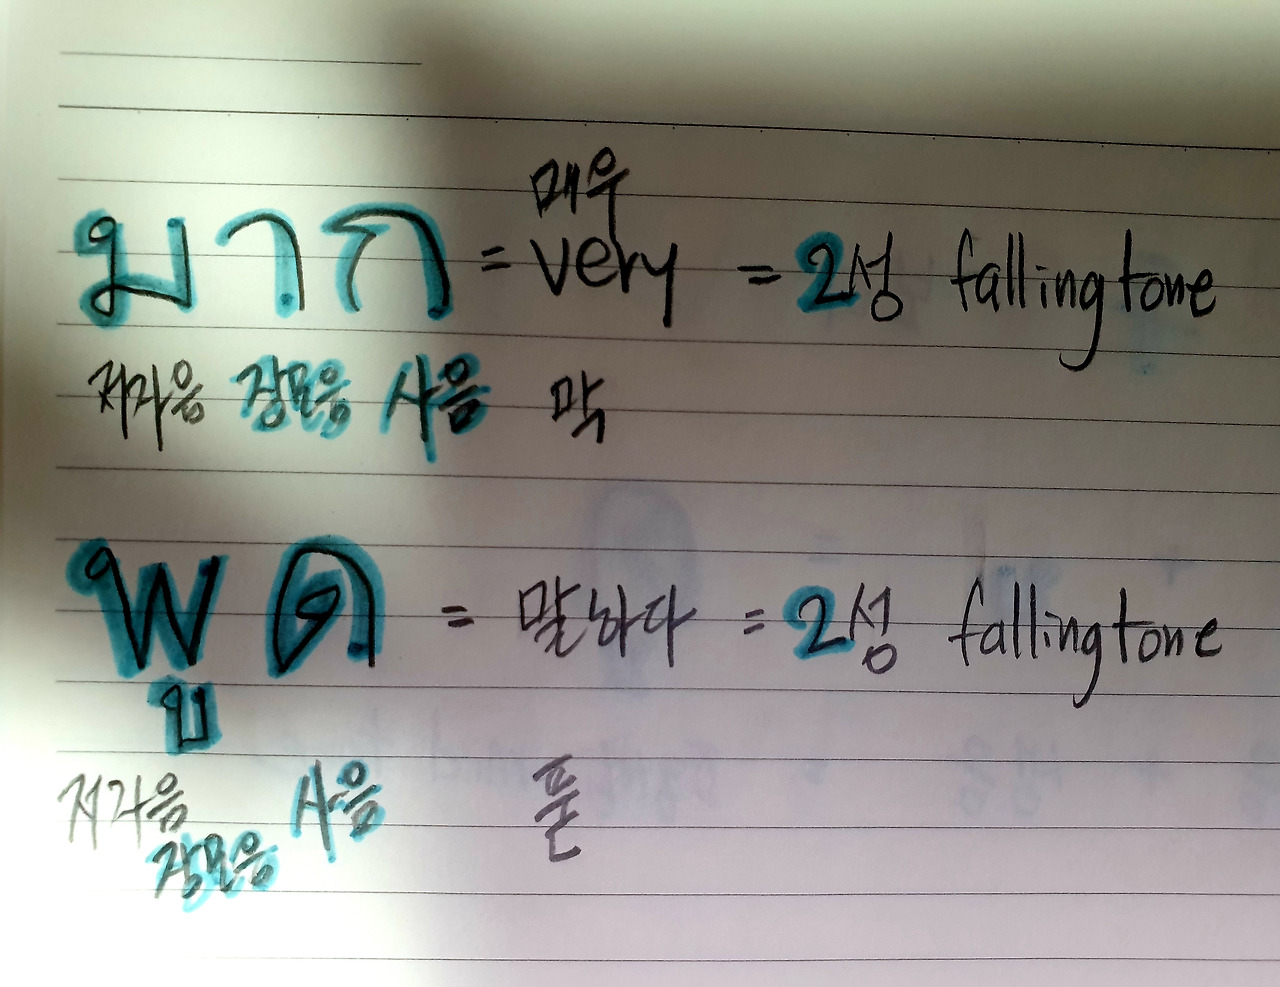 매우
มาก = very = 2성 falling tone
저자음 장모음 사음 막
พูด = 말하다 = 2성 falling tone
저자음 사음 푿
장모음